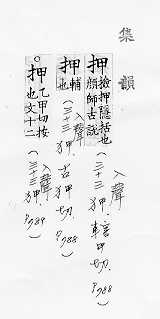 集韻
押
撿押隱括也
顏師古説
入聲
(三十三狎.轄甲切
P.788)
押
輔也
入聲
(三十三狎.古狎切
P.788)
。押
乙甲切按
也文十二
入聲
(三十三狎
P.789)